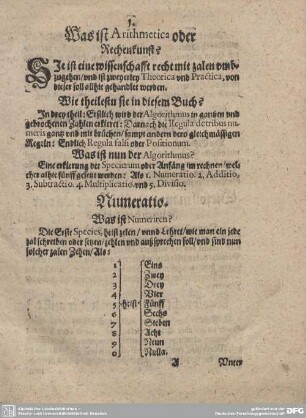 1.
Was ist Arithmetica oder
Rechenkunst?
SJe ist eine wissenschafft recht mit zalen vmb-
zugehen/vnd ist zweyerley Theorica vnd Practica, von
dieser soll allhie gehandlet werden.
Wie theilestu sie in diesem Buch?
In drey theil: Erstlich wird der Algorithmus in gantzen vnd
gebrochenen Zahlen erklert: Darnach die Regula de tribus nu-
meris gantz vnd mit brüchen/sampt andern dero gleichmässigen
Regeln: Endlich Regula falsi oder Positionum.
Was ist nun der Algorithmus?
Eine erklerung der Specierum oder Anfäng im rechnen/wel-
cher alhie fünff gelesen werden: Als 1. Numeratio. 2. Additio,
3. Subtractio. 4. Multiplicatio. vnd 5. Divisio.
Numeratio.
Was ist Numeriren?
Die Erste Species, heist zelen/vnnd Lehret/wie man ein jede
zal schreiben oder setzen/zehlen vnd außsprechen soll/vnd sind nun
solcher zalen Zehen/Als:
1 Eins
2 Zwey
3 Drey
4 Vier
5 heist Fünff
6 Sechs
7 Sieben
8 Acht
9 Neun
0 Nulla.
A Vnter